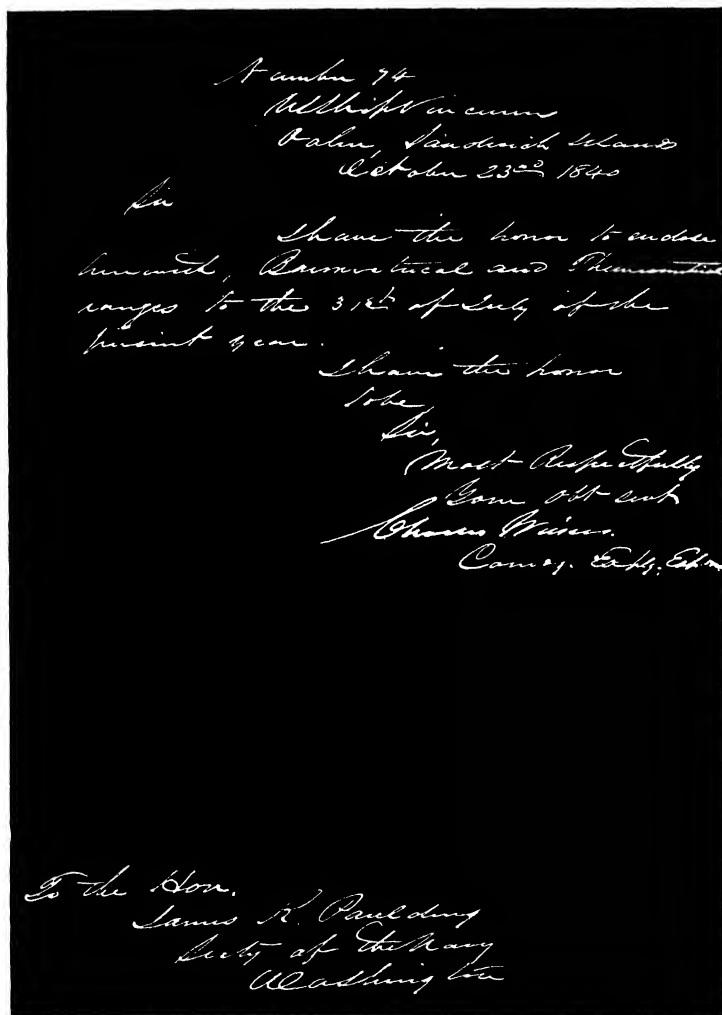 Number 74
U S Ship Vincennes
Oahu, Sandwich Islands
October 23rd 1840
Sir
I have the honor to enclose
herewith, Barometrical and Thermometrical
ranges to the 31st of July of the
present year.
I have the honor
to be,
Sir,
Most Respectfully
Your Obt Servt
Charles Wilkes.
Comdg. Explg. Expn
To the Hon.
James K. Paulding
Secty of the Navy
Washington